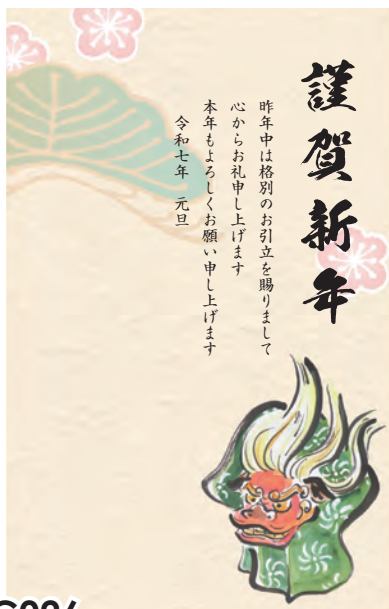 謹賀新年
昨年中は格別のお引立を賜りまして
心からお礼申し上げます
本年もよろしくお願い申し上げます
令和七年 元旦